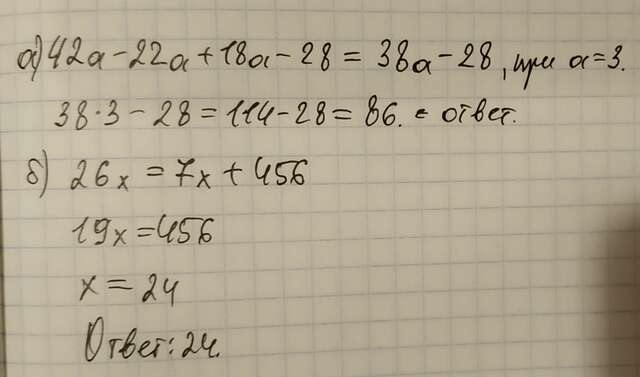 а) 42a - 22a + 18a - 28 = 38a - 28, при a = 3.
38 · 3 - 28 = 114 - 28 = 86. - ответ.
б) 26x = 7x + 456
19x = 456
x = 24
Ответ: 24.